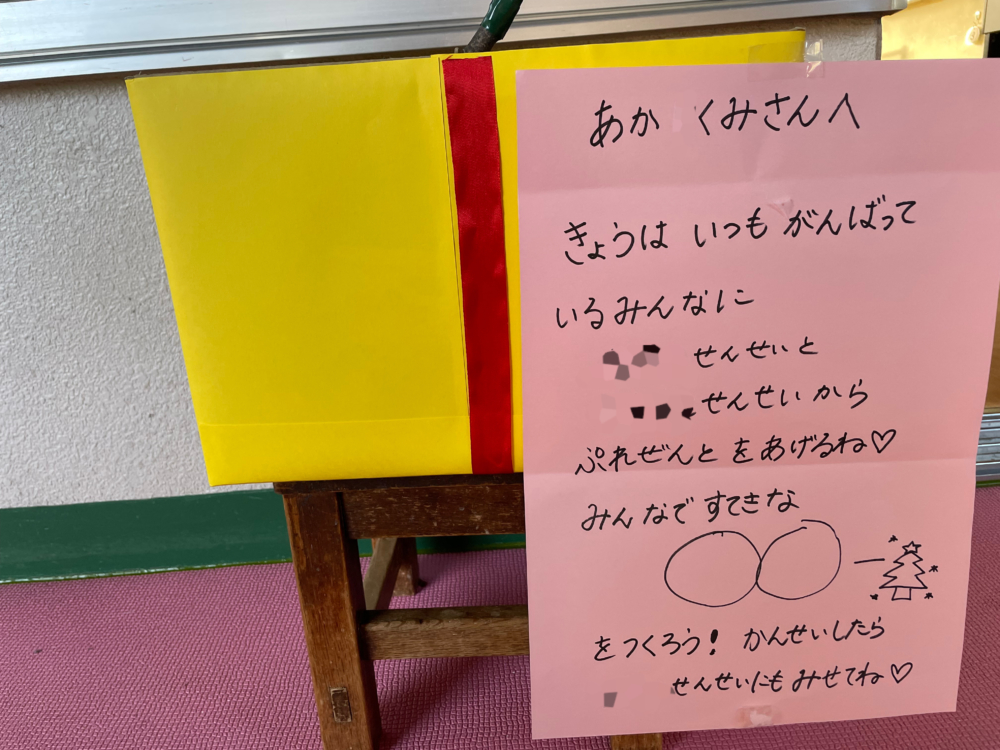 あか くみさんへ
きょうは いつも がんばって
いるみんなに
せんせいと
せんせいから
ぷれぜんとをあげるね♡
みんなですてきな
ー
をつくろう! かんせいしたら
せんせいにもみせてね♡